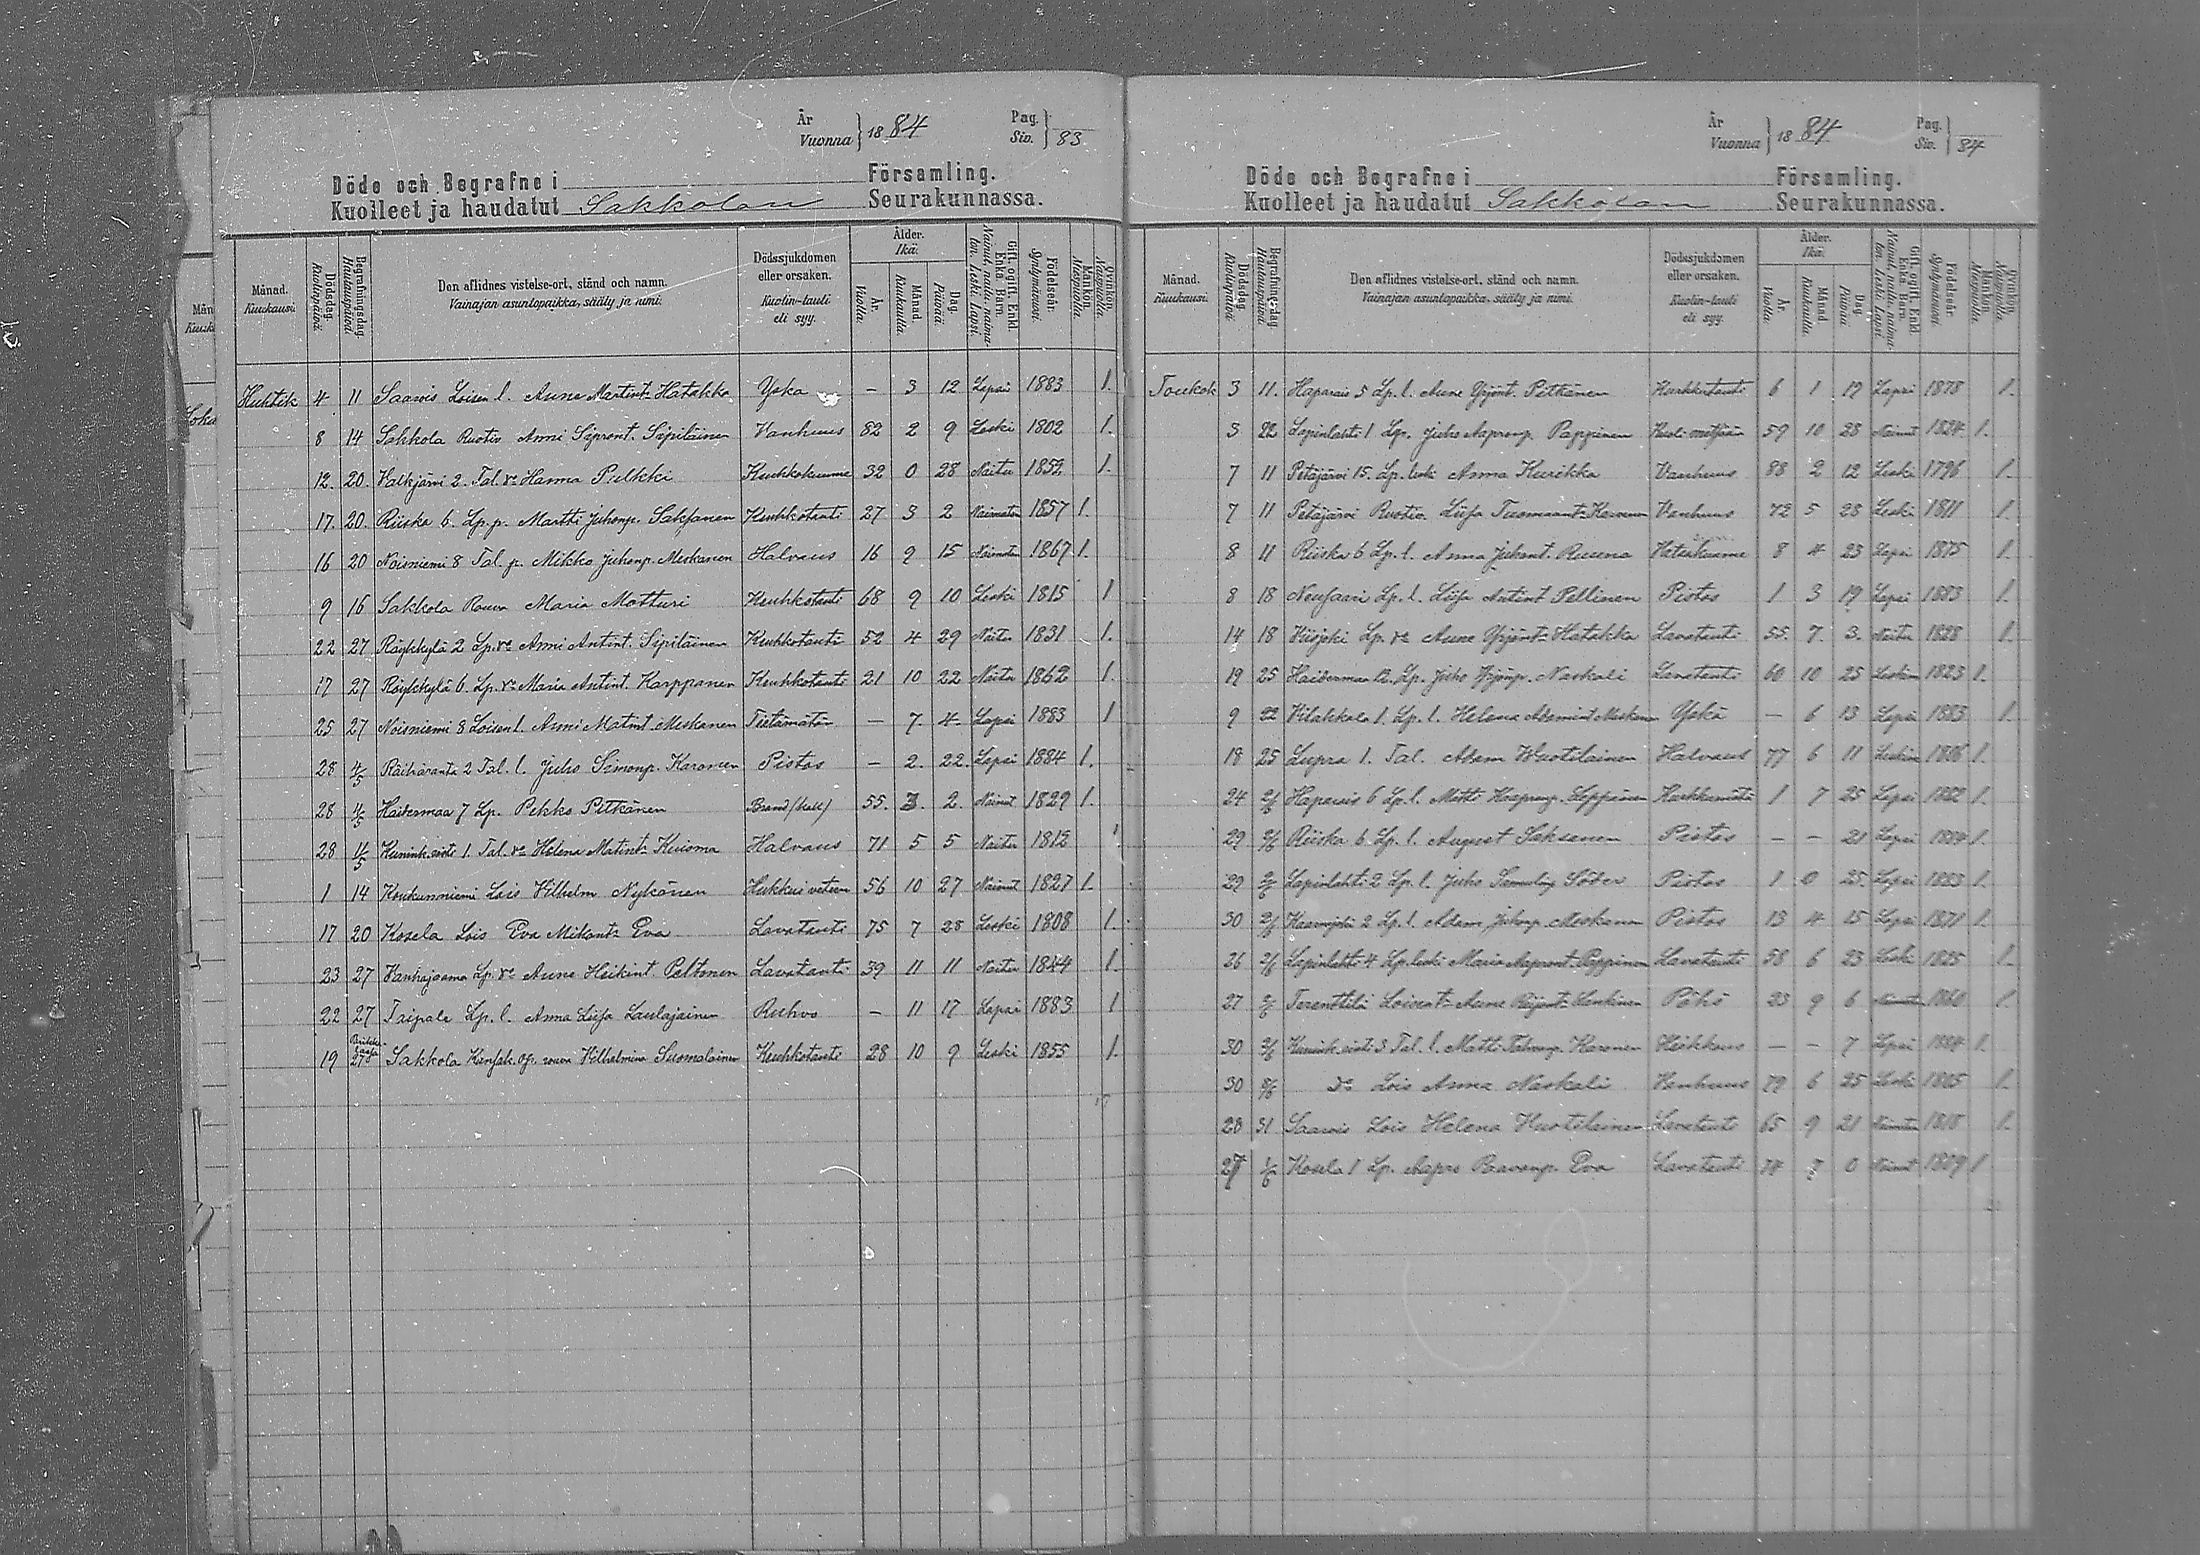 År
Vuonna } 1884 Pag.
Siv. } 83
Döde och Begrafne i Församling.
Kuolleet ja haudatut Sakkolan Seurakunnassa.
Månad. Kuukausi. Dödsdag. Kuolinpäivä. Begrafningsdag. Hautauspäivä. Den aflidnes vistelse-ort, stånd och namn. Vainajan asuntopaikka, sääty ja nimi. Dödssjukdomen eller orsaken. Kuolin-tauti eli syy. Ålder. Ikä. År. Vuotta. Månad. Kuukautta. Dag. Päivää. Gift, ogift, Enkl. Enka, Barn. Nainut, naitu, naimaton, Leski, Lapsi. Födelseår. Syntymävuosi. Mankön. Miespuolia. Qvinkön. Naispuolia.
Huhtik 4 11 Saarois Loisen l. Anna Martint. Hatakka Yskä – 3 12 Lapsi 1883 1.
8 14 Sakkola Ruotiv Anni Sipront. Sipiläinen Vanhuus 82 2 9 Leski 1802 1.
12. 20. Valkjärvi 2. Tal. vo Hanna Pulkki Keuhkokuume 32 0 28 Naitu 1852 1.
17. 20. Riiska 6. Lp. p. Martti Juhonp. Saksanen Keuhkotauti 27 3 2 Naimaton 1857 1.
16 20 Noisniemi 8 Tal. p. Mikko Juhonp. Meskanen Halvaus 16 9 15 Naimaton 1867 1.
9 16 Sakkola Rouva Maria Motturi Keuhkotauti 68 9 10 Leski 1815 1
22 27 Röykkylä 2 Lp. vo Anni Antint. Sipiläinen Keuhkotauti 52 4 29 Naitu 1831 1.
17 27 Röykkylä 6. Lp. vo Maria Antint. Karppanen Keuhkotauti 21 10 22 Naitu 1862 1.
25 27 Noisniemi 8 Loisen l. Anni Matint. Meskanen Tietämätön – 7. 4 Lapsi 1883 1
28 4/5 Räihäranta 2 Tal. l. Juho Simonp. Karonen Pistos – 2. 22. Lapsi 1884 1.
28 4/5 Haitermaa 7 Lp. Pekko Pitkänen Brand (kall) 55. 3. 2. Nainut 1829 1.
28 4/5 Kunink.risti 1. Tal. vo Helena Matint. Kuisma Halvaus 71 5 5 Naitu 1812 1
1 14 Koukunniemi Lois Vilhelm Nykänen Hukkui veteen 56 10 27 Nainut 1827 1.
17 20 Kosela Lois Eva Mikont. Eva Lavatauti 75 7 28 Leski 1808 1.
23 27 Vanhajaama Lp. vo Anna Heikint. Peltonen Lavatauti 39 11 11 Naitu 1844 1.
22 27 Taipale Lp. l. Anna Liisa Laulajainen Ruhvo – 11 17 Lapsi 1883 1
19 27 Sakkola rouva Vilhelmina Suomalainen Keuhkotauti 28 10 9 Leski 1855 1.
17
År
Vuonna } 1884 Pag.
Siv. } 84
Döde och Begrafne i Församling.
Kuolleet ja haudatut Sakkolan Seurakunnassa.
Månad. Kuukausi. Dödsdag. Kuolinpäivä. Begrafningsdag. Hautauspäivä. Den aflidnes vistelse-ort, stånd och namn. Vainajan asuntopaikka, sääty ja nimi. Dödssjukdomen eller orsaken. Kuolin-tauti eli syy. Ålder. Ikä. År. Vuotta. Månad. Kuukautta. Dag. Päivää. Gift, ogift, Enkl. Enka, Barn. Nainut, naitu, naimaton, Leski, Lapsi. Födelseår. Syntymävuosi. Mankön. Miespuolia. Qvinkön. Naispuolia.
Toukok 3 11. Haparais 5 Lp. l. Anna Yrjönt. Pitkänen Kurkkutauti 6 1 19 Lapsi 1878 1.
3 22 Lapinlahti 1 Lp. Juho Aapronp. Pappinen Kuoli metsään 59 10 28 Nainut 1824 1.
7 11 Petäjärvi 15. Lp. leski Anna Kurikka Vanhuus 88 2 12 Leski 1796 1.
7 11 Petäjärvi Ruotiv. Liisa Tuomaant. Karonen Vanhuus 72 5 28 Leski 1811 1.
8 11 Riiska 6 Lp. l. Anna Juhont. Ruuna 8 4 23 Lapsi 1875 1.
8 18 Neusaari Lp. l. Liisa Antint Pellinen Pistos 1 3 19 Lapsi 1883 1.
14 18 Kiisjoki Lp. vo Anna Yrjönt. Hatakka Lavatauti 55. 7. 3. Naitu 1828 1.
19 25 Haitermaa 12. Lp. Juho Yrjönp. Naskali Lavatauti 60 10 25 Leskim 1823 1.
9 22 Vilakkala 1. Lp. l. Helena Adamint Meskanen Yskä – 6 13 Lapsi 1883 1.
18 25 Lupra 1. Tal. Adam Huotilainen Halvaus 77 6 11 Leskim 1806 1.
24 2/6 Haparais 6 Lp. l. Matti Kurkkumätä 1 7 25 Lapsi 1882 1.
29 2/6 Riiska 6 Lp. l. August Saksanen Pistos – – 21 Lapsi 1884 1.
29 2/6 Lapinlahti 2 Lp. l. Juho Samulinp Söder Pistos 1 0 25. Lapsi 1883 1.
30 2/6 2 Lp. l. Adam Juhonp. Meskanen Pistos 13 4 15 Lapsi 1871 1.
26 2/6 Lapinlahti 4 Lp. leski Maria Aapront. Pappinen Lavatauti 58 6 23 Leski 1825 1.
27 2/6 Terenttilä Loisen t. Anna Lavatauti Pöhö 23 9 6 Naimaton 1860 1.
30 2/6 Kunink.risti 3 Tal. l. Matti Karonen Heikkous – – 7 Lapsi 1884 1.
30 2/6 do Lois Anna Naskali Vanhuus 79 6 25 Leski 1805 1.
28 31 Saarois Lois Helena Huotilainen Lavatauti 65 9 21 Naimaton 1818 1.
27 1/6 Kosela 1 Lp. Aapro Paavonp. Eva Lavatauti 74 0 Nainut 1809 1